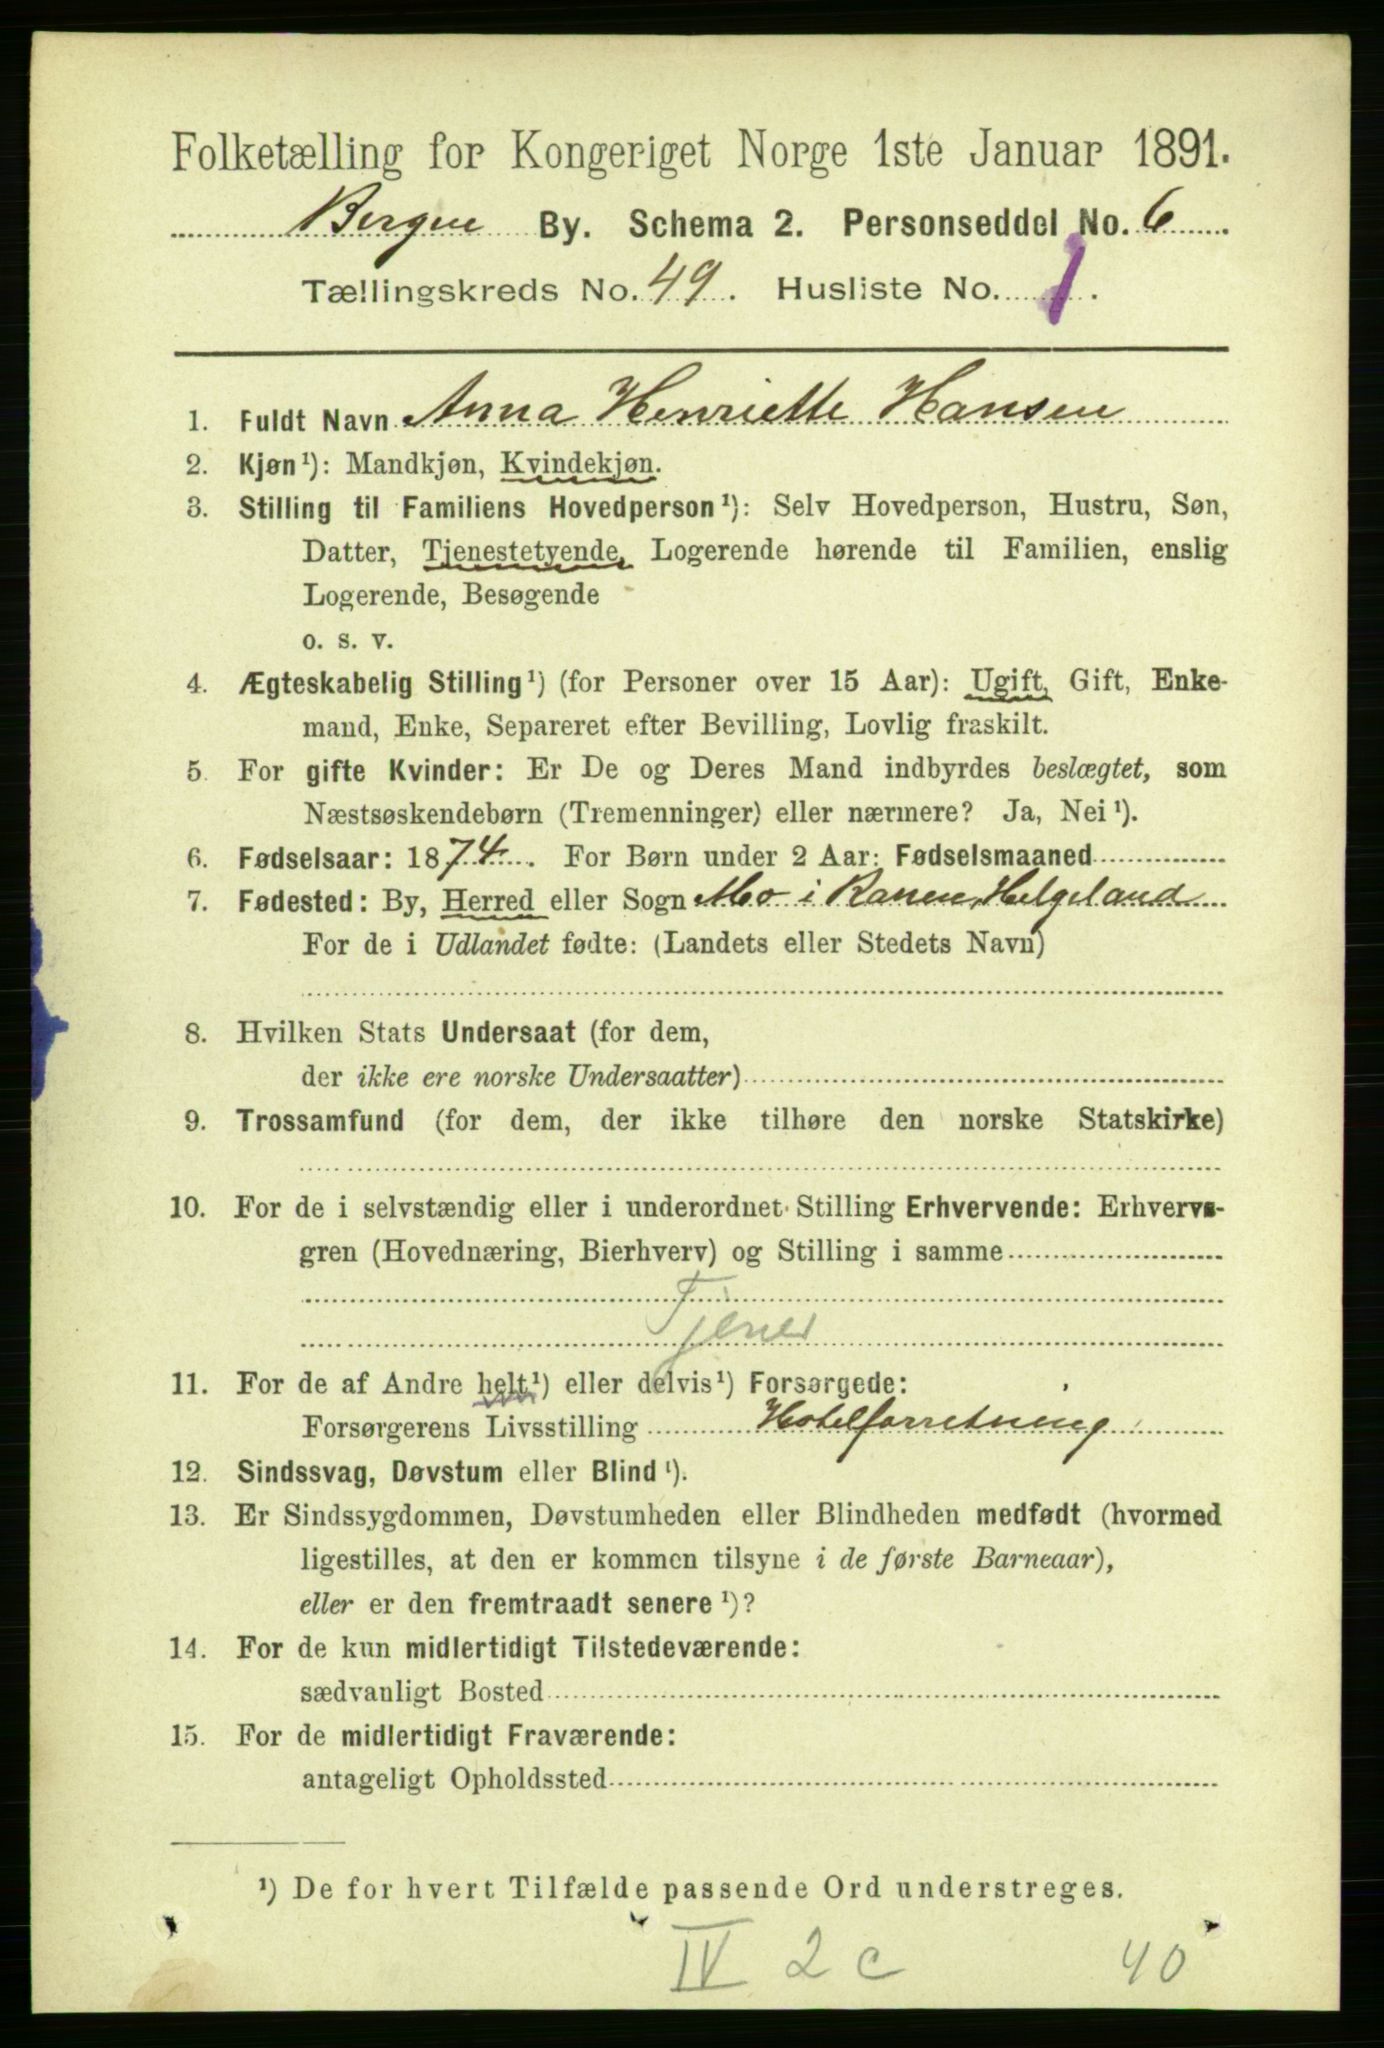 Folketælling for Kongeriget Norge 1ste Januar 1891.
Bergen By. Schema 2. Personseddel No. 6
Tællingskreds No. 49. Husliste No. 1.
1. Fuldt Navn Anna Henriette Hansen
2. Kjøn¹): Mandkjøn, Kvindekjøn.
3. Stilling til Familiens Hovedperson¹): Selv Hovedperson, Hustru, Søn,
Datter, Tjenestetyende, Logerende hørende til Familien, enslig
Logerende, Besøgende
o. s. v.
4. Ægteskabelig Stilling¹) (for Personer over 15 Aar): Ugift, Gift, Enke-
mand, Enke, Separeret efter Bevilling, Lovlig fraskilt.
5. For gifte Kvinder: Er De og Deres Mand indbyrdes beslægtet, som
Næstsøskendebørn (Tremenninger) eller nærmere? Ja, Nei¹).
6. Fødselsaar: 1874. For Børn under 2 Aar: Fødselsmaaned
7. Fødested: By, Herred eller Sogn Mo i Ranen, Helgeland
For de i Udlandet fødte: (Landets eller Stedets Navn)
8. Hvilken Stats Undersaat (for dem,
der ikke ere norske Undersaatter)
9. Trossamfund (for dem, der ikke tilhøre den norske Statskirke)
10. For de i selvstændig eller i underordnet Stilling Erhvervende: Erhvervs-
gren (Hovednæring, Bierhverv) og Stilling i samme
Tjener
11. For de af Andre helt¹) eller delvis¹) Forsørgede:
Forsørgerens Livsstilling Hotelforretning
12. Sindssvag, Døvstum eller Blind¹).
13. Er Sindssygdommen, Døvstumheden eller Blindheden medfødt (hvormed
ligestilles, at den er kommen tilsyne i de første Barneaar),
eller er den fremtraadt senere¹)?
14. For de kun midlertidigt Tilstedeværende:
sædvanligt Bosted
15. For de midlertidigt Fraværende:
antageligt Opholdssted
¹) De for hvert Tilfælde passende Ord understreges.
IV 2 c 40